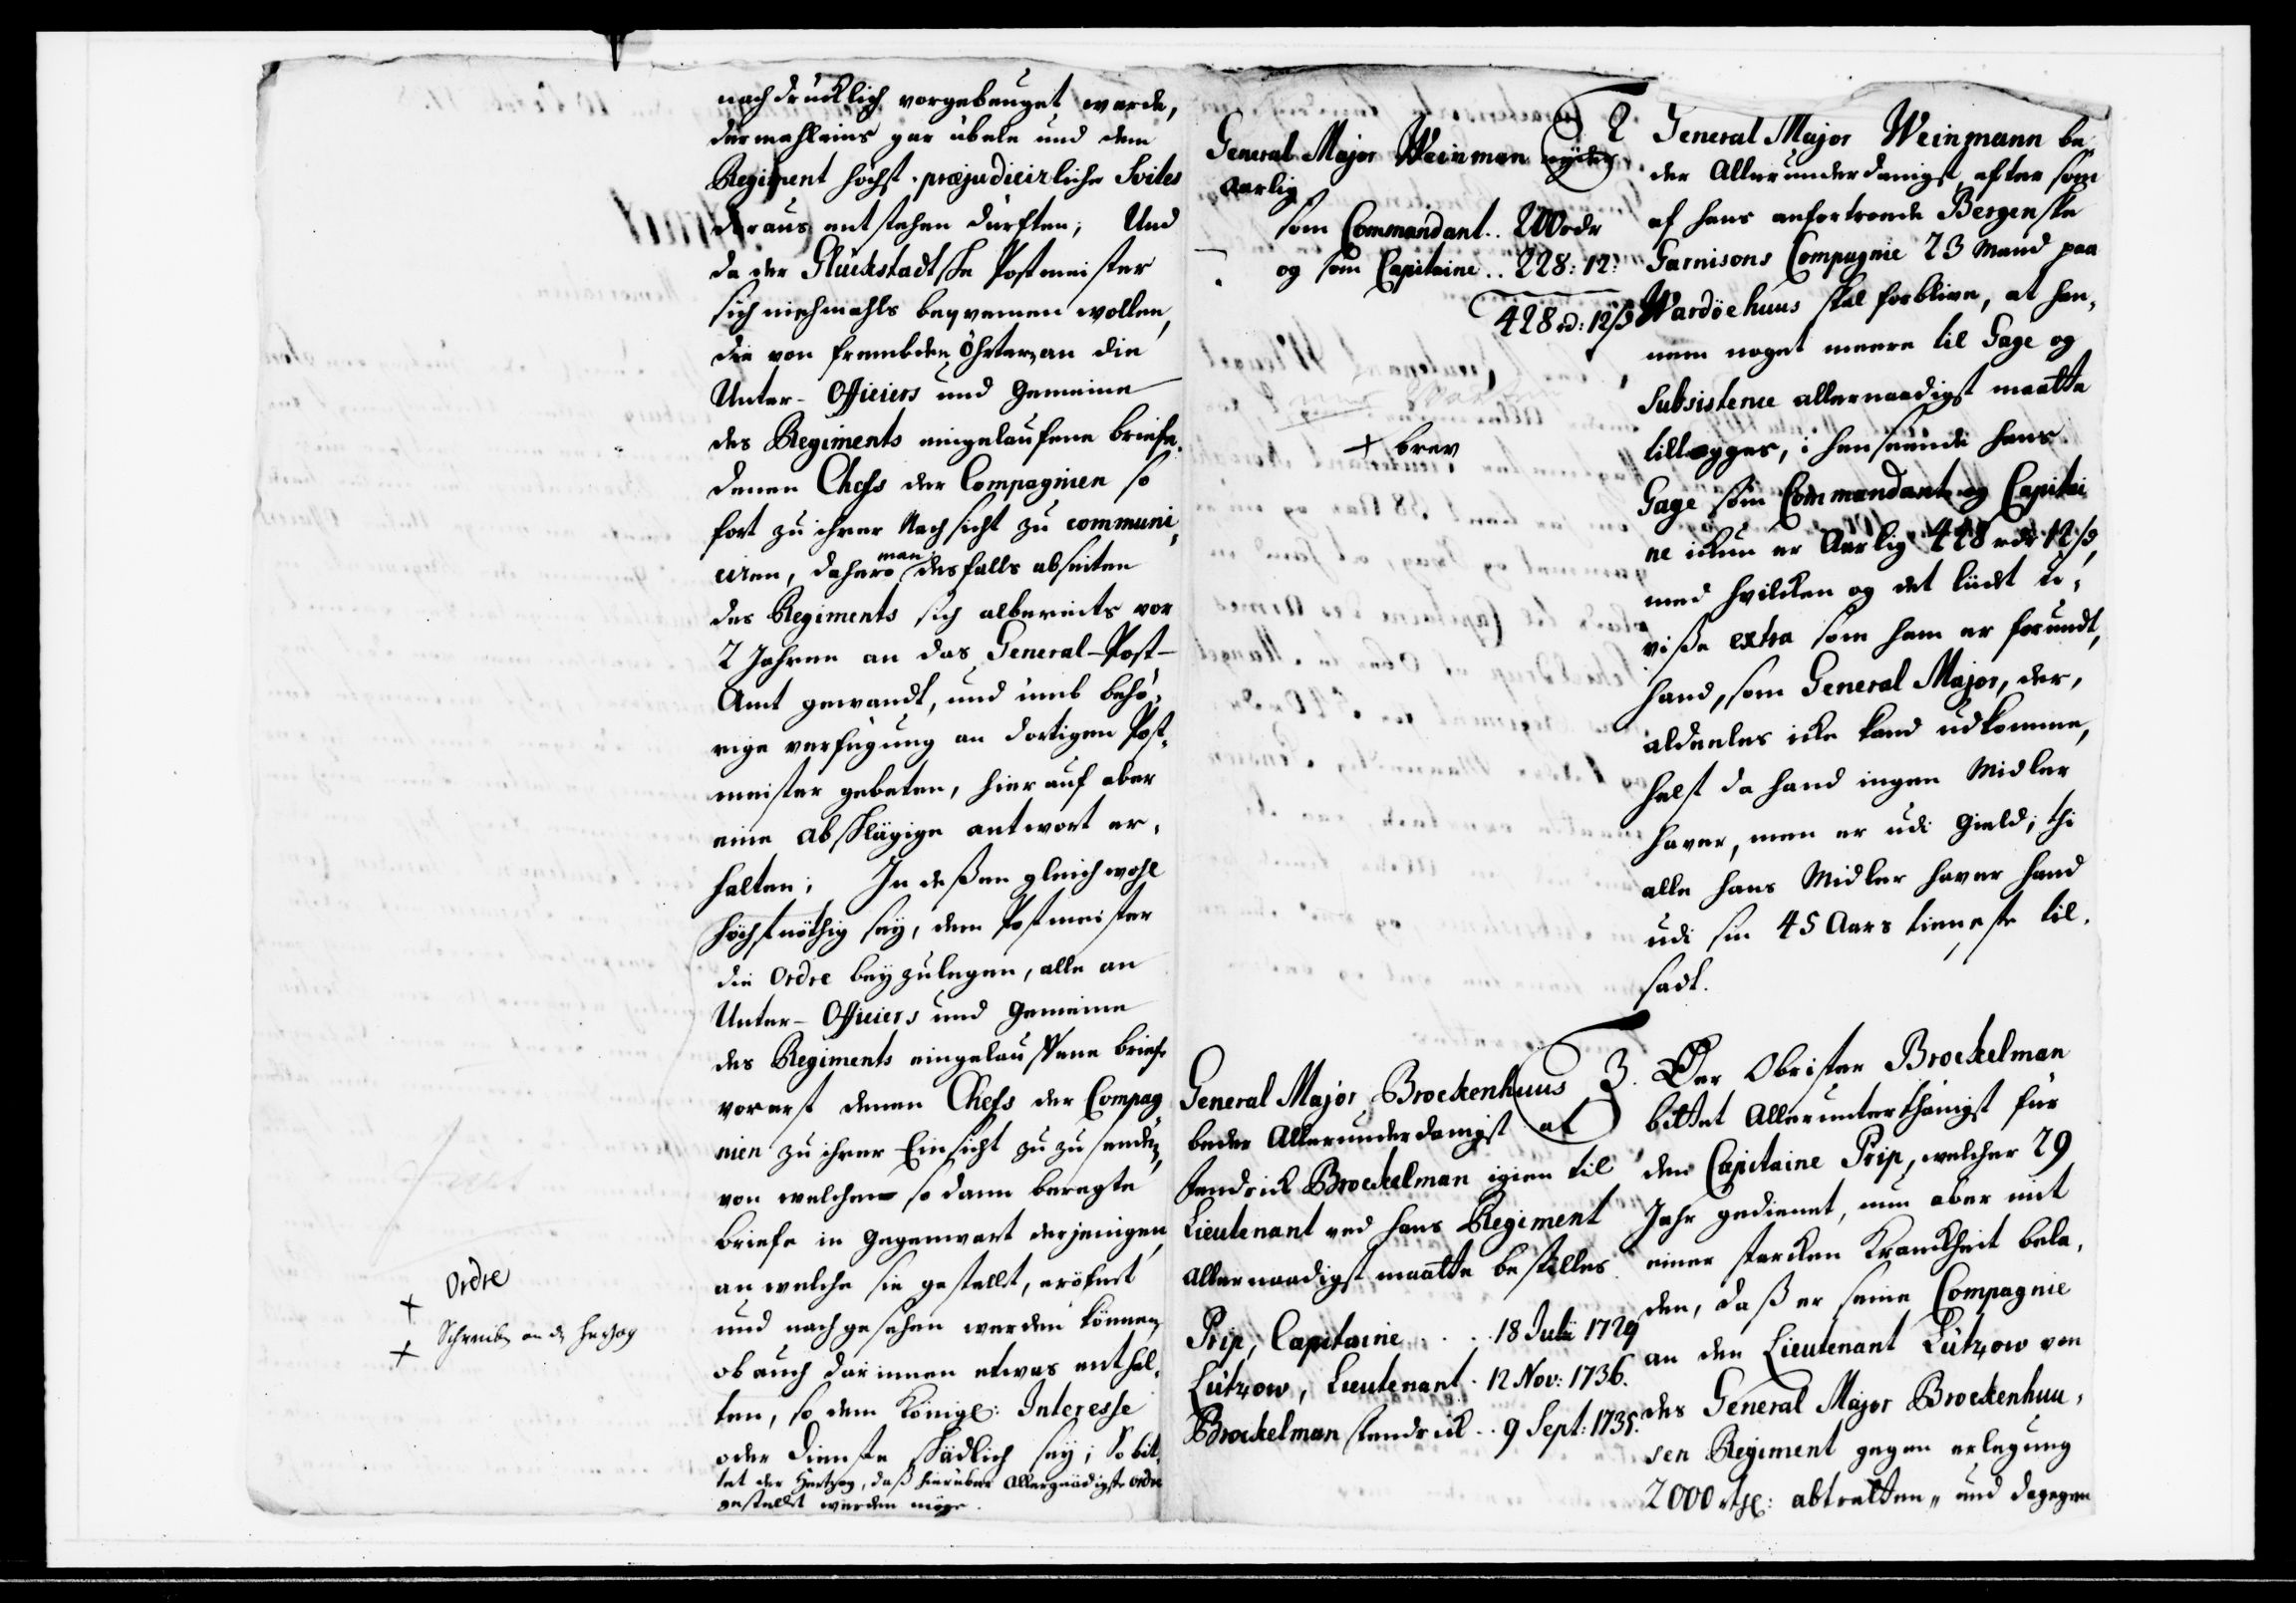 nachdrücklich vorgebeuget werde,
dermahleins gar übele und dem
Regiment höchst præjudicirliche Svites
daraus entstehen dürften; Und
da der Glückstadtsche Postmeister
sich niehmahls beqvemen wollen,
die von frembden Öhrtern an die
Unter-Officiers und Gemeine
des Regiments eingelaufene briefe
denen Chefs der Compagnien so
fort zu ihrer Nachsicht zu communi,
ciren, dahero man desfalls abseiten
des Regiments sich albereits vor
2 Jahren an das General-Post-
Amt gewandt, und umb behö,
rige verfügung an dortigen Post,
meister gebeten, hierauf aber
eine abschlägige antwort er,
halten; Indeßen gleichwohl
höchstnöthig sey, dem Postmeister
die Ordre beyzulegen, alle an
Unter-Officiers und Gemeine
des Regiments eingelauffene briefe
vorerst denen Chefs der Compag
nien zu ihrer Einsicht zuzusenden,
von welchen so dann beregte
briefe in Gegenwart derjenigen,
an welche sie gestellt, eröfnet
und nachgesehen werden können,
ob auch darinnen etwas enthal,
ten, so dem Königl: Interesse
oder Dienste schädlich sey; So bit,
tet der Hertzog, daß hierüber Allergnädigste Ordre
gestellet werden möge.
+ Ordre
+ Schreiben an den Hertzog
General Major Weinman nyder
aarlig
som Commandant.. 200 rdr
og som Capitaine.. 228: 12:
428 rd: 12 ß
+ brev
2 General Major Weinmann be,
der Allerunderdanigst, eftersom
af hans anfortroede Bergenske
Garnisons Compagnie 23 Mand paa
Wardöehuus skal forblive, at han,
nem noget meere til Gage og
Subsistence allernaadigst maatte
tillægges, i henseende hans
Gage som Commandant og Capitai
ne ickun er Aarlig 428 rdr 12 ß,
med hvilcken og det liidet u-
visse extra som ham er forundt,
hand, som General Major, der,
aldeeles icke kand udkomme,
helst da hand ingen Midler
haver, men er udi Gield; thi
alle hans Midler haver hand
udi sin 45 Aars tieneste til,
sadt.
General Major Brockenhuus
beder Allerunderdanigst at
fendrick Brockelman igien til
Lieutenant ved hans Regiment
Allernaadigst maatte bestilles
Prip, Capitaine . . . 18 Julii 1729
Lützow, Lieutenant . 12 Nov: 1736.
Brockelman fendrick . . 9 Sept: 1735.
3. Der Obrister Brockelman
bittet Allerunterthänigst für
den Capitaine Prip, welcher 29
Jahr gedienet, nun aber mit
einer starcken Kranckheit bela,
den, daß er seine Compagnie
an den Lieutenant Lützow von
des General Major Brockenhuu,
sen Regiment gegen erlegung
2000 rthl: abtretten, und dagegen